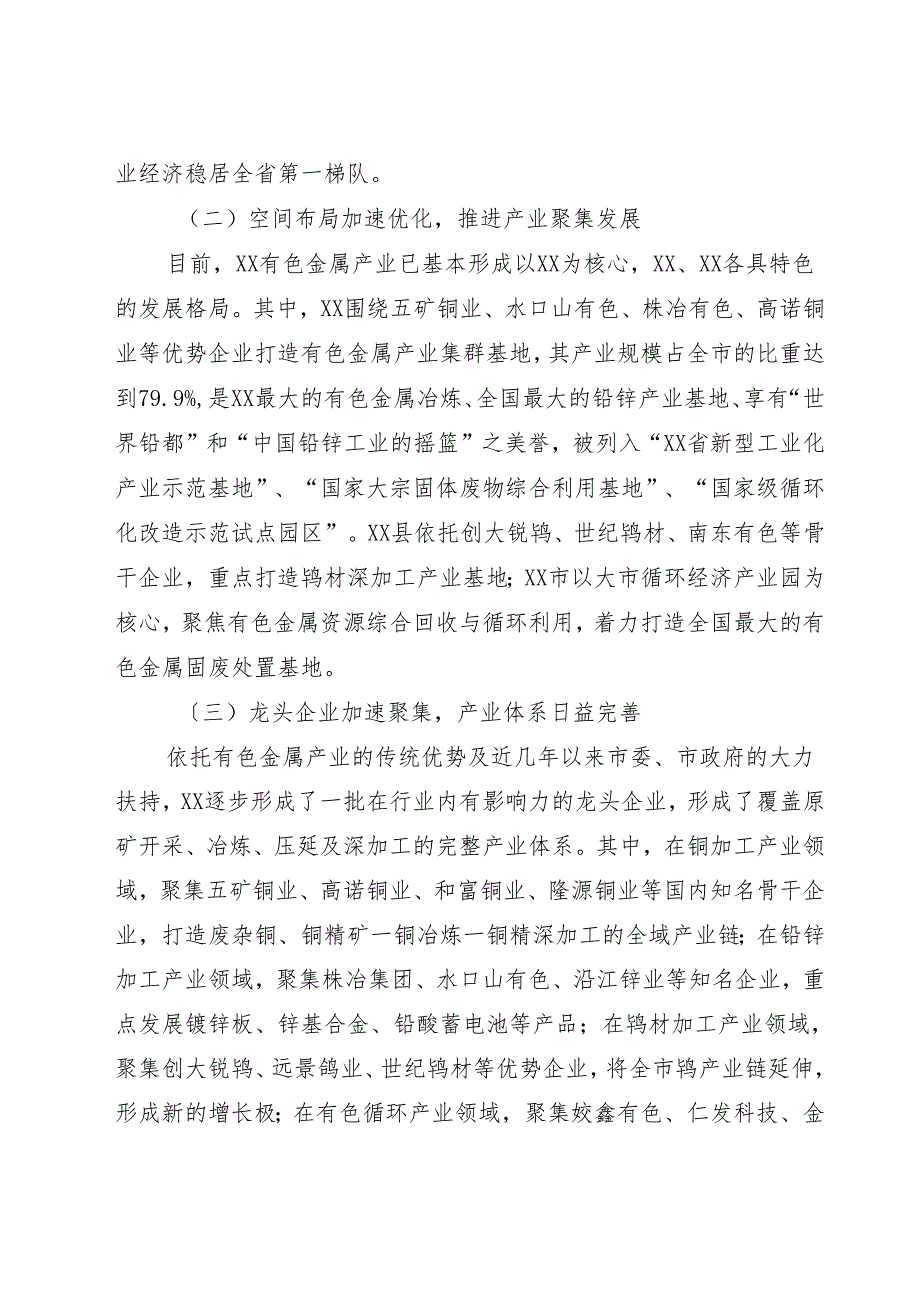 业经济稳居全省第一梯队。
（二）空间布局加速优化，推进产业聚集发展
目前，XX有色金属产业已基本形成以XX为核心，XX、XX各具特色
的发展格局。其中，XX围绕五矿铜业、水口山有色、株冶有色、高诺铜
业等优势企业打造有色金属产业集群基地，其产业规模占全市的比重达
到79.9%,是XX最大的有色金属冶炼、全国最大的铅锌产业基地、享有“世
界铅都”和“中国铅锌工业的摇篮”之美誉，被列入“XX省新型工业化
产业示范基地”、“国家大宗固体废物综合利用基地”、“国家级循环
化改造示范试点园区”。XX县依托创大锐鸨、世纪鸨材、南东有色等骨
干企业，重点打造鸨材深加工产业基地；XX市以大市循环经济产业园为
核心，聚焦有色金属资源综合回收与循环利用，着力打造全国最大的有
色金属固废处置基地。
〔三）龙头企业加速聚集，产业体系日益完善
依托有色金属产业的传统优势及近几年以来市委、市政府的大力
扶持，XX逐步形成了一批在行业内有影响力的龙头企业，形成了覆盖原
矿开采、冶炼、压延及深加工的完整产业体系。其中，在铜加工产业领
域，聚集五矿铜业、高诺铜业、和富铜业、隆源铜业等国内知名骨干企
业，打造废杂铜、铜精矿一铜冶炼一铜精深加工的全域产业链；在铅锌
加工产业领域，聚集株冶集团、水口山有色、沿江锌业等知名企业，重
点发展镀锌板、锌基合金、铅酸蓄电池等产品；在鸨材加工产业领域，
聚集创大锐鸨、远景鸽业、世纪鸨材等优势企业，将全市鸨产业链延伸，
形成新的增长极；在有色循环产业领域，聚集姣鑫有色、仁发科技、金